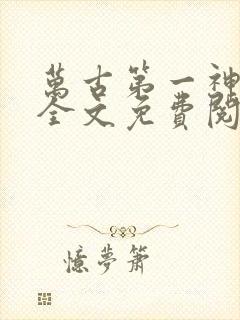 萬古第一神
全文免費閱
憶夢簫